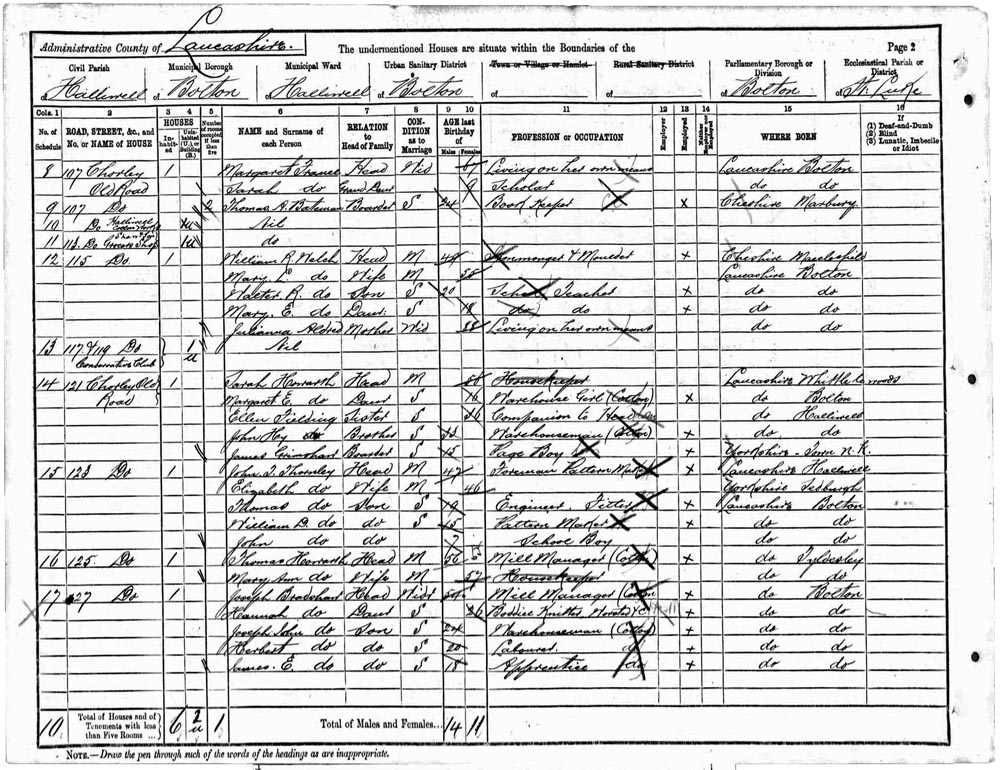 Administrative County of Lancashire.
The undermentioned Houses are situate within the Boundaries of the
Page 2
Civil Parish
Municipal Borough
Municipal Ward
Urban Sanitary District
Town or Village or Hamlet
Rural Sanitary District
Parliamentary Borough or Division
Ecclesiastical Parish or District
of Halliwell of Bolton of Halliwell of Bolton of of of Bolton of St. Luke
Cols. 1 2 3 4 5 6 7 8 9 10 11 12 13 14 15 16
No. of Schedule
ROAD, STREET, &c., and No. or NAME of HOUSE
HOUSES
Inhabited
Uninhabited (U.) or Building (B.)
Number of rooms occupied if less than five
NAME and Surname of each Person
RELATION to Head of Family
CONDITION as to Marriage
AGE last Birthday of
Males Females
PROFESSION or OCCUPATION
Employer
Employed
Neither Employer nor Employed
WHERE BORN
If
(1) Deaf-and-Dumb
(2) Blind
(3) Lunatic, Imbecile or Idiot
8 107 Chorley 1 Margaret France Head Wid 67 Living on her own means Lancashire Bolton
Old Road Sarah do Grand Daur 9 Scholar do do
9 107 Do 2 Thomas A. Bateman Boarder S 24 Book Keeper X Cheshire Marbury
10 Do Halliwell 1u Nil
11 113 Do Grocers Shop 1u do
12 115 Do 1 William R. Welch Head M 48 Ironmonger & Moulder X Cheshire Macclesfield
Mary. do Wife M 58 Lancashire Bolton
Walter R. do Son S 20 School Teacher X do do
Mary. E. do Daur. S 18 do do X do do
Julianna Mother Wid 88 Living on her own means do do
13 117 & 119 Do 1 u Nil
Conservative Club
14 121 Chorley Old 1 Sarah Howarth Head M 58 Housekeeper Lancashire
Road Margaret E. do Daur S 16 Warehouse Girl (Cotton) X do Bolton
Ellen Fielding Sister S 36 Companion to Head do Halliwell
John Hy do Brother S 33 Warehouseman (Cotton) X do do
James Grimshaw Boarder S 15 Page Boy X Yorkshire - Town N.K.
15 123 Do 1 John T. Thornley Head M 47 Foreman Pattern Maker X Lancashire Halliwell
Elizabeth do Wife M 46 Yorkshire Sedburgh
Thomas do Son S 19 Engineer Fitter X Lancashire Bolton
William D. do do S 15 Pattern Maker X do do
John do do 7 School Boy do do
16 125 Do 1 Thomas Horrath Head M 56 Mill Manager (Cotton) X do Tyldesley
Mary Ann do Wife M 57 Housekeeper do do
17 127 Do 1 Joseph Bradshaw Head Widr 50 Mill Manager (Cotton X do Bolton
Hannah do Daur S 26 Bodice Knitter X do do
Joseph John do Son S 24 Warehouseman (Cotton) X do do
Herbert do do S 20 Labourer do X do do
James. E. do do S 18 Apprentice do X do do
10 Total of Houses and of Tenements with less than Five Rooms ... 6 2 u 1 Total of Males and Females... 14 11
NOTE.—Draw the pen through such of the words of the headings as are inappropriate.